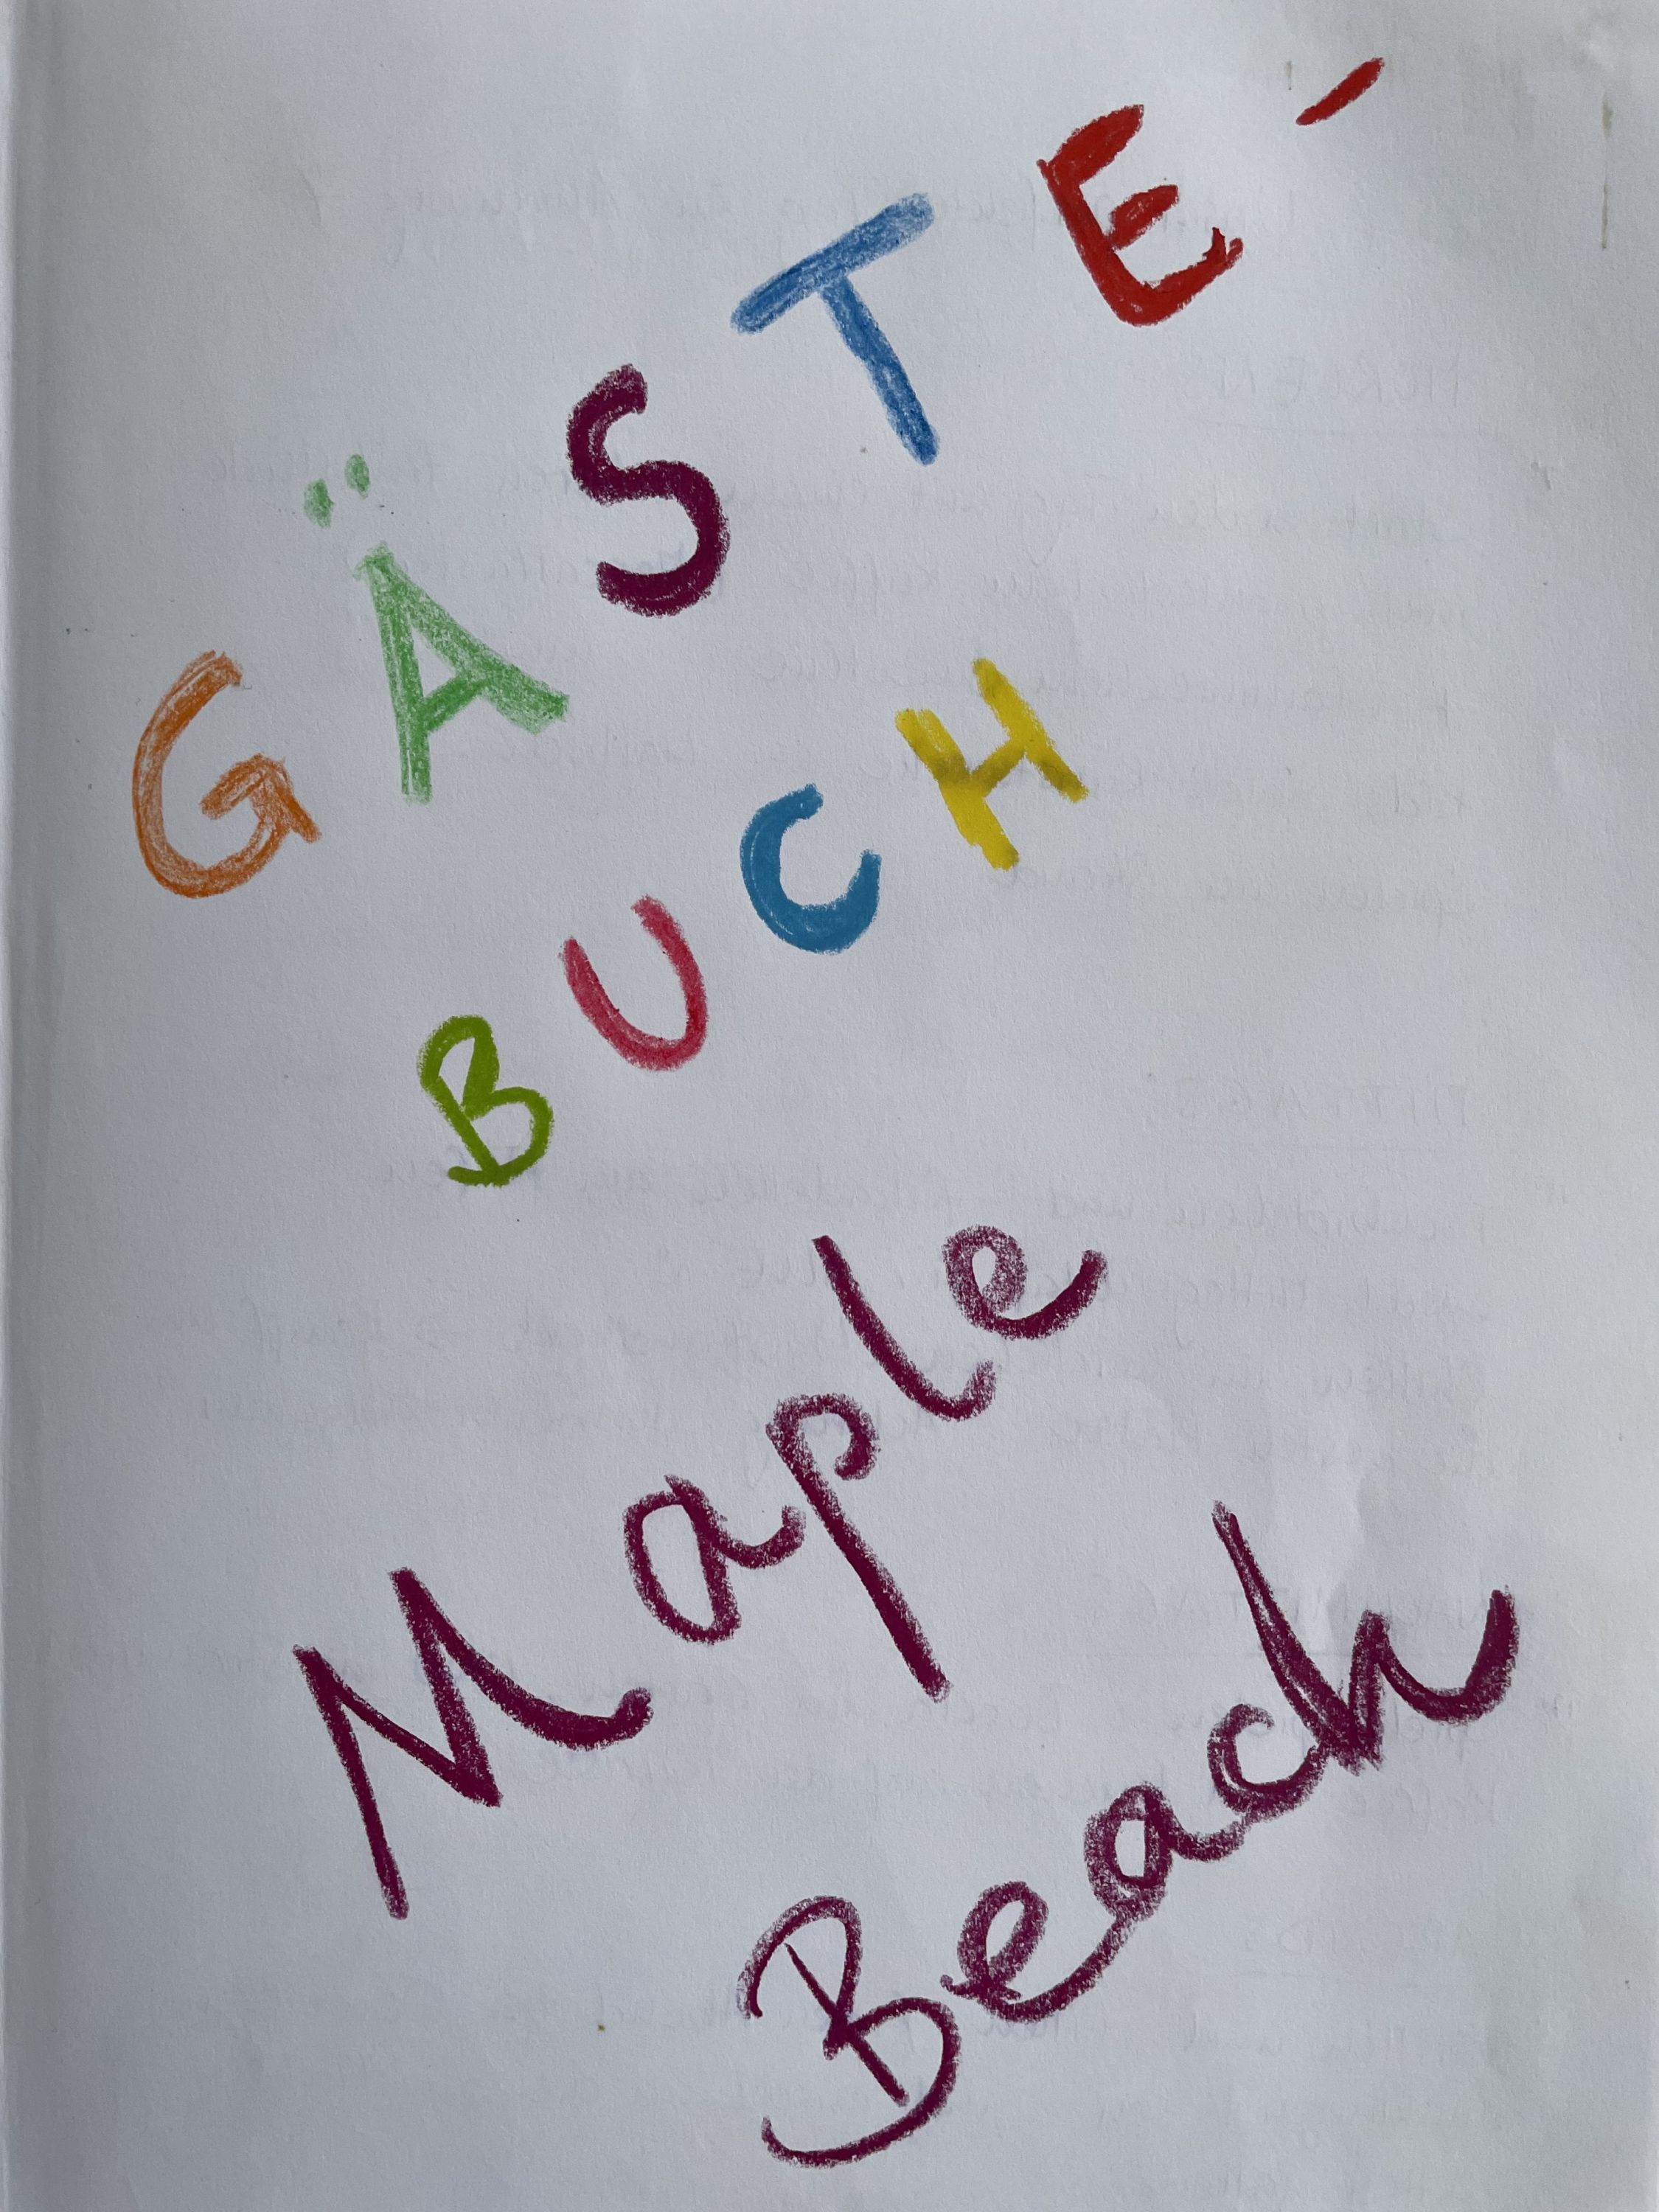 GÄSTE-
BUCH
Maple
Beach